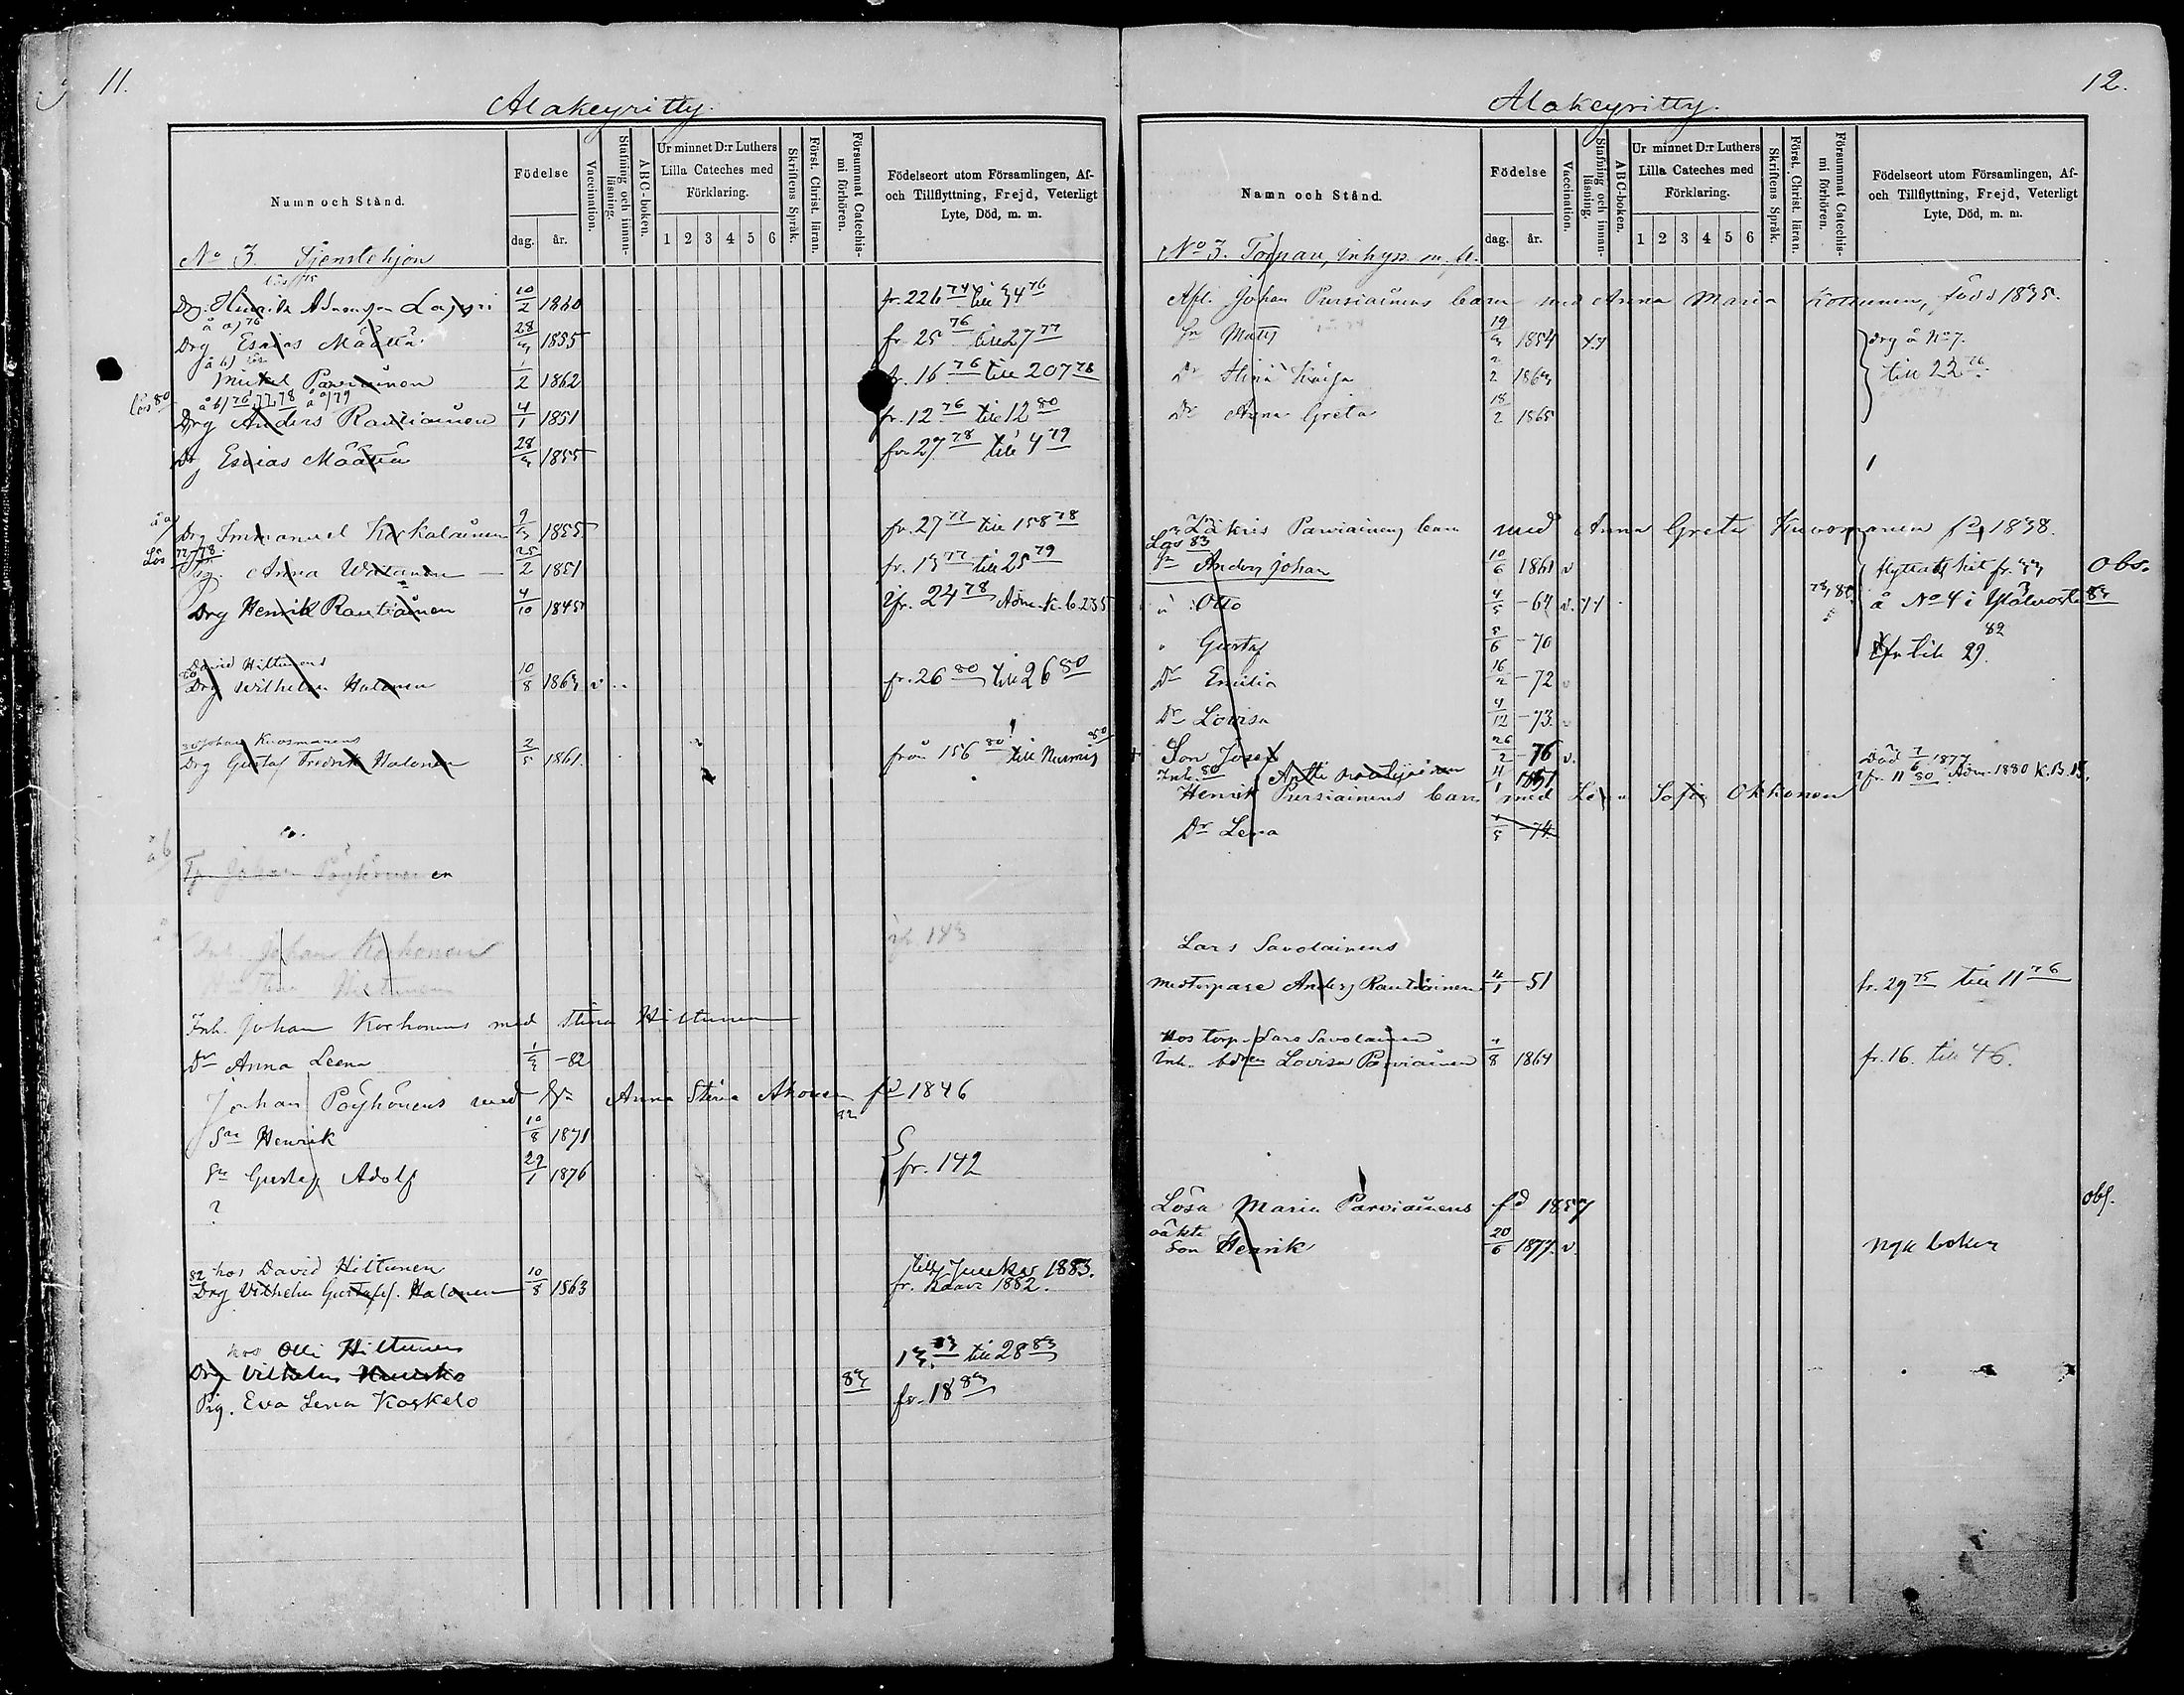 11.
Alakeyritty.
Namn och Stånd.
Födelse
dag. år.
Vaccination.
Stafning och innan-läsning.
ABC-boken.
Ur minnet D:r Luthers Lilla Cateches med Förklaring.
1 2 3 4 5 6
Skriftens Språk.
Först. Christ. läran.
Försummat Catechis-mi förhören.
Födelseort utom Församlingen, Af- och Tillflyttning, Frejd, Veterligt Lyte, Död, m. m.
No 3. Tjenstehjon
Drg. Henrik Adamsson 10/2 1860 fr. 226 74 till 34 76
å a) 76
Drg Esaias Määttä 28/3 1855 fr 25 76 till 27 77
å b)
Mickel Parviainen 1/2 1862 fr. 16 76 till 207 78
lös 80 å b) 76, 77, 78 å a) 79
Drg Anders Rautiainen 4/1 1851 fr. 12 76 till 12 80
Dr Esaias Määttä 28/3 1855 fr 27 78 till 4 79
å a) Drg Immanuel Koskalainen 9/3 1855 fr. 27 77 till 158 78
Lös 77-78.
Pig. Anna Watanen 25/2 1851 fr. 13 77 till 25 79
Drg Henrik Rautiainen 4/10 1845 fr. 24 78 Adm. K. b. 235
David Hiltunens
80 Drg Wilhelm Halonen 10/8 1863 v fr. 26 80 till 26 80
80 Johan Kuosmanens
Drg Gustaf Fredrik Halonen 2/5 1861 från 156 80 till Nurmis 80
å b
Johan Pöyhönen
Inh. Johan Korhonen 143
Stina Hiltunen
Inh. Johan Korhonens med Stina Hiltunen
Dr Anna Leena 1/3 -82
Johan Pöyhönens med Hu Anna Stina Ahonen fd 1846
Son Henrik 10/8 1871
Sn Gustaf Adolf 29/1 1876 fr. 142
?
82 hos David Hiltunen till Juuka 1883.
Drg Vilhelm Gustafss. Halonen 10/8 1863 fr. Kaavi 1882.
hos Olli Hiltunen
Drg Vilhelm 13. 83 till 28 83
Pig. Eva Lena Koskelo 83 fr. 18 83
12.
Alakeyritty.
Namn och Stånd.
Födelse
dag. år.
Vaccination.
Stafning och innan-läsning.
ABC-boken.
Ur minnet D:r Luthers Lilla Cateches med Förklaring.
1 2 3 4 5 6
Skriftens Språk.
Först. Christ. läran.
Försummat Catechis-mi förhören.
Födelseort utom Församlingen, Af- och Tillflyttning, Frejd, Veterligt Lyte, Död, m. m.
No 3. Torpare, inhyss. m. fl.
Afl. Johan Pursiainens barn med Anna Maria Kotunen, född 1835.
Sn Matts 19/3 1854 drg å No 7.
Dr Stina Kaisa 2/2 1863 till 22 76
Dr Anna Greta 18/2 1865
Zakris Parviainens barn med Anna Greta Kuosmanen fd 1838.
Lös 83
Sn Anders Johan 10/6 1861 v flyttade hit fr. 33 Obs.
Otto 4/5 -64 v. å No 4 i 83
Gustaf 5/6 -70 till 29. 82
Dr Emilia 16/2 -72 v
Dr Lovisa 4/12 -73. v
+ Son Josef 26/2 -76 v. Död 7/6 1877
Inh. 80 Antti Rautiainen 4/1 1851 fr. 11 80 Adm. 1880 K.B.
Henrik Pursiainens barn med Lena Sofia Okkonen
Dr Lena 1/5 -74
Lars Savolainens
medtorpare Anders Rautiainen 4/1 -51 fr. 29 75 till 11 76
Hos torp. Lars Savolainen
Inh. Lovisa Parviainen 4/8 1864 fr. 16. till 46.
Lösa Maria Parviainens fd 1857 obs.
oäkta
Son Henrik 20/6 1877. v nya boken